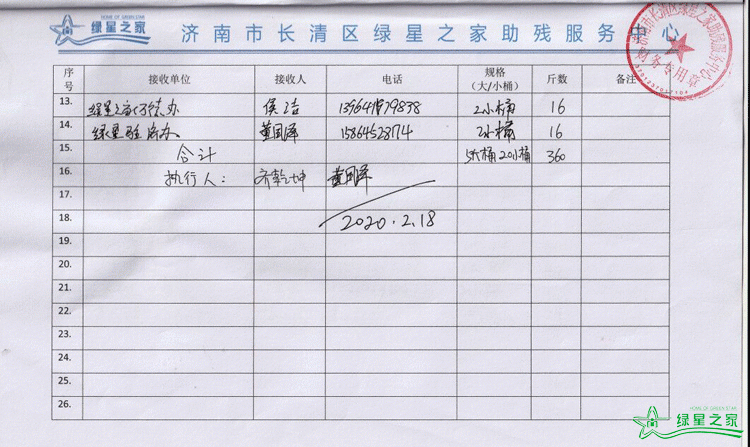 HOME OF GREEN STAR
绿星之家 济南市长清区绿星之家助残服务中心
济南市长清区绿星之家助残服务中心
财务专用章
序号 接收单位 接收人 电话 规格（大/小桶） 斤数 备注
13. 绿星之家 侯洁 2小桶 16
14. 绿星 办 董国泽 15864523174 2小桶 16
15. 合计 5大桶 20小桶 360
16. 执行人： 齐乾坤 董国泽
17.
18. 2020.2.18
19.
20.
21.
22.
23.
24.
25.
26.
HOME OF GREEN STAR
绿星之家